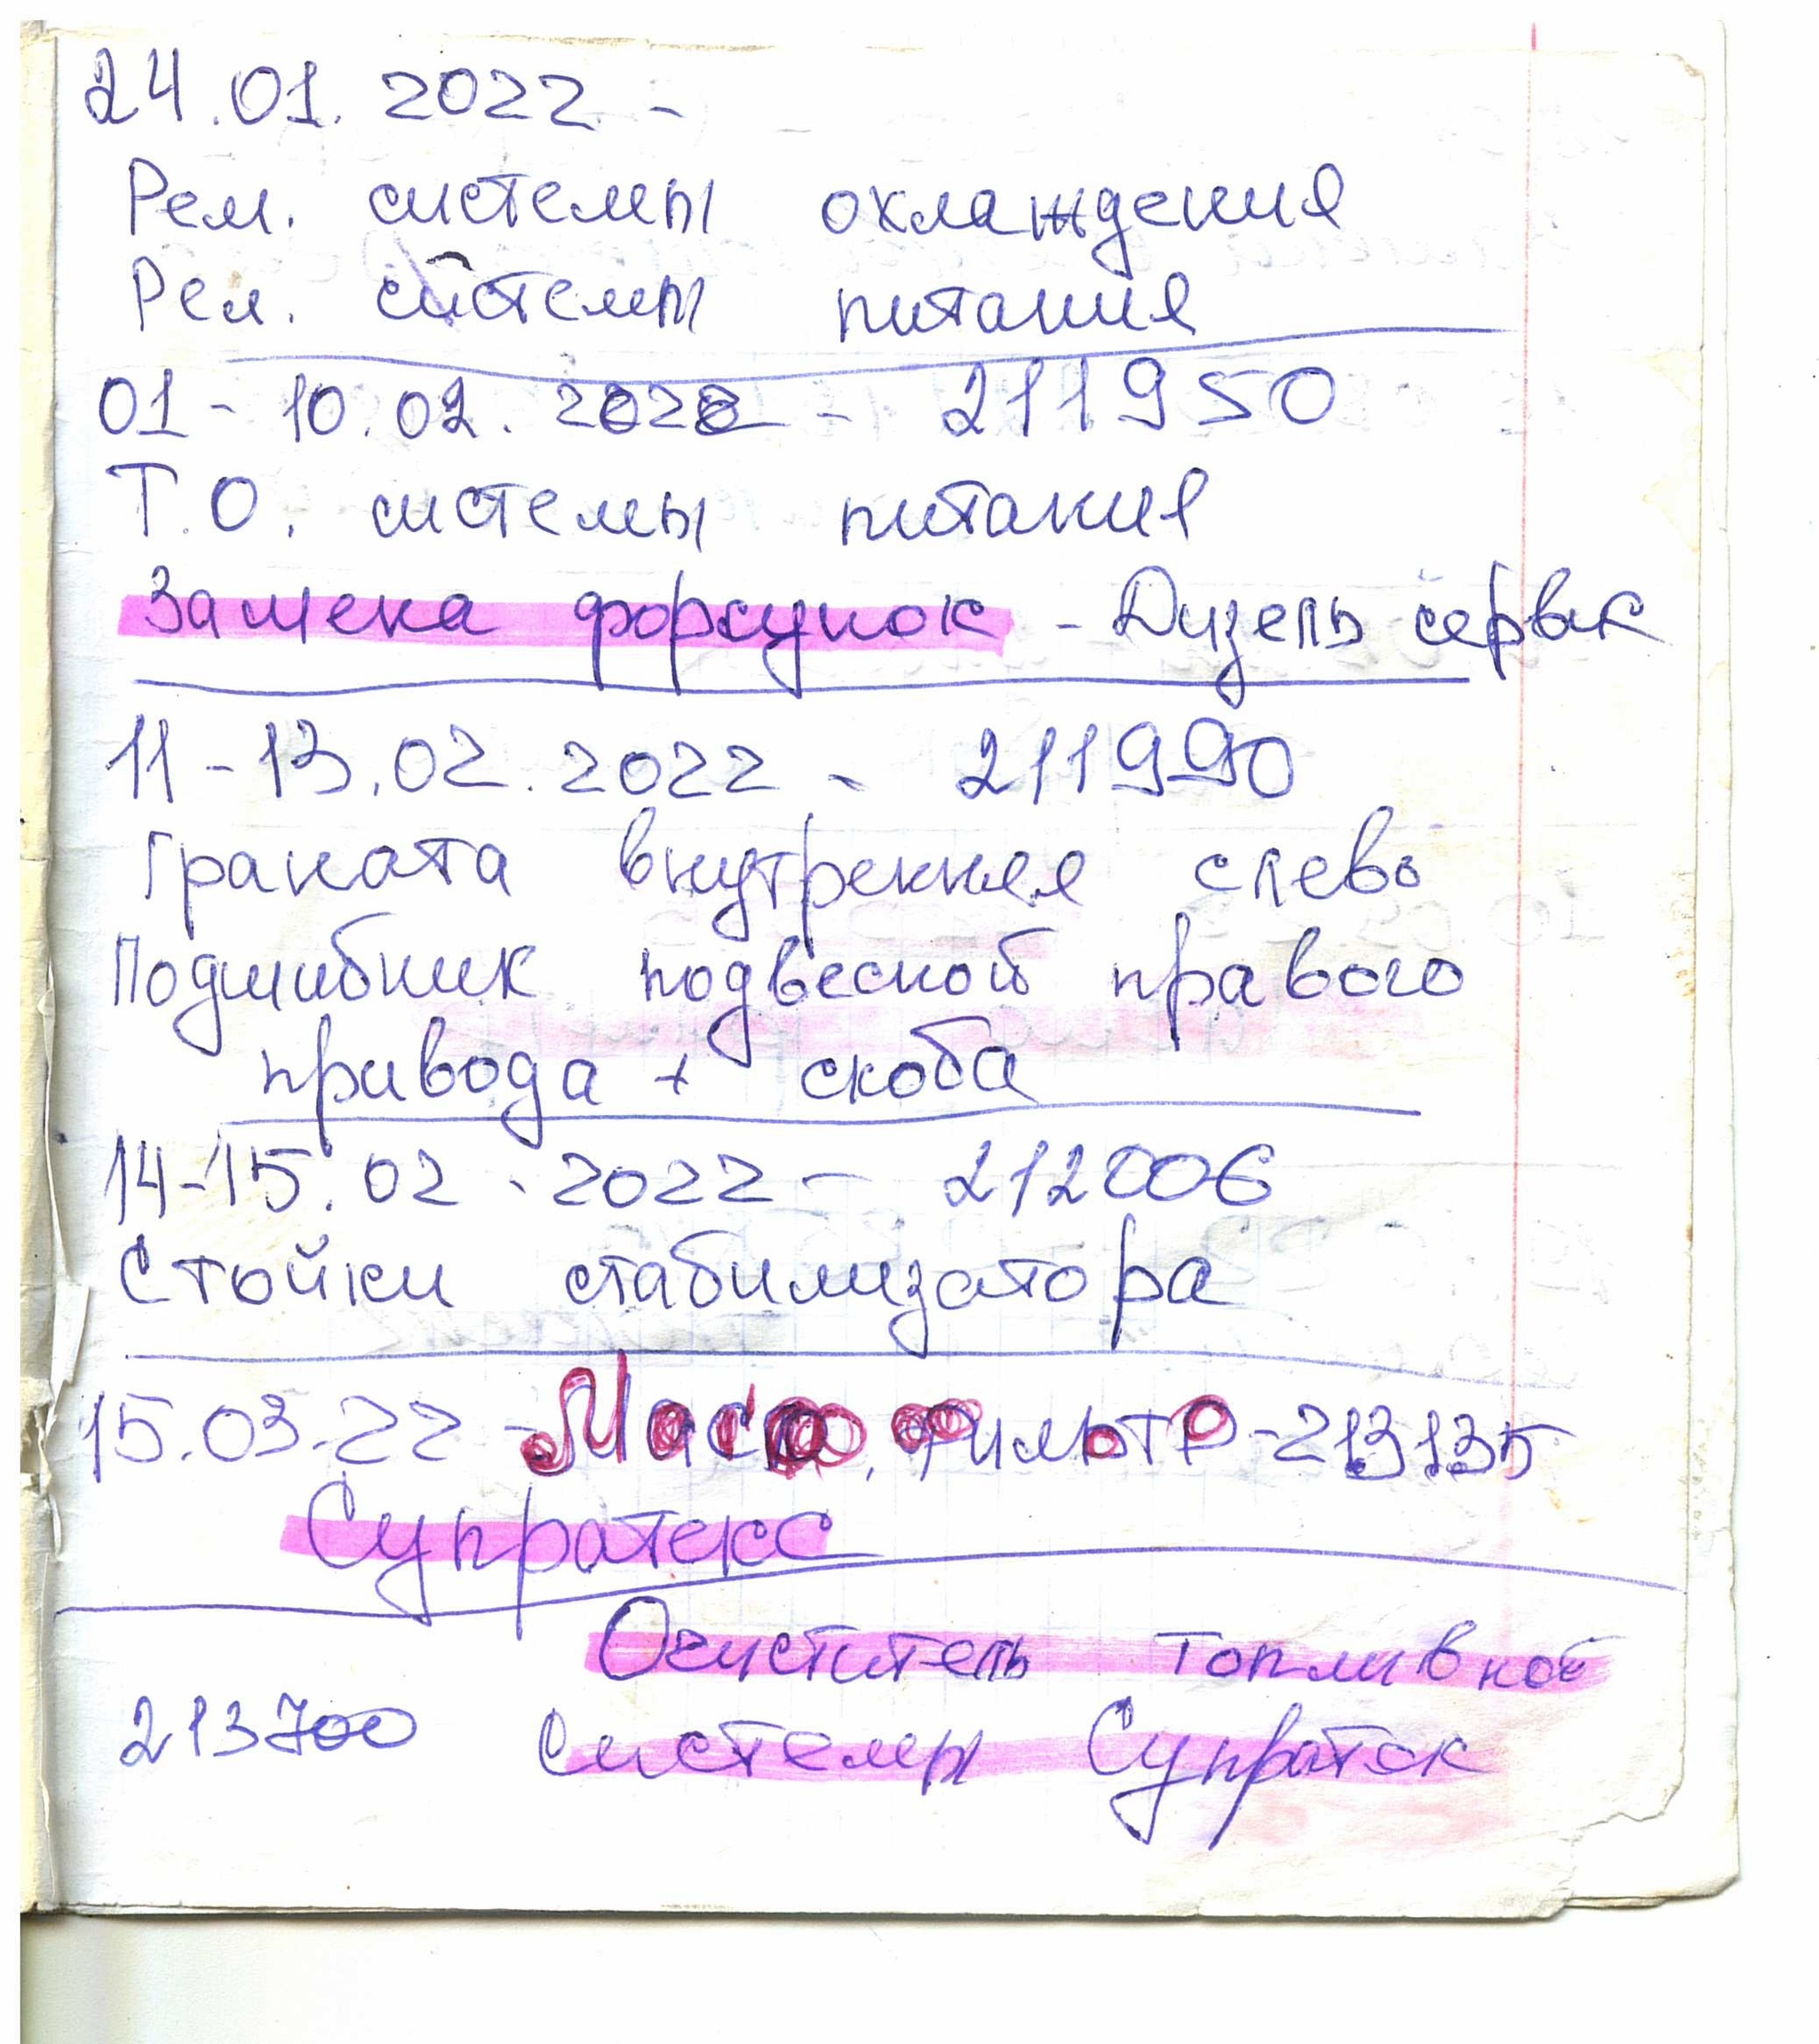 24.01.2022 -
Рем. системы охлаждения
Рем. системы питания
01 - 10.02.2022 - 211950
Т.О. системы питания
Замена форсунок - Дизель сервис
11 - 13.02.2022 - 211990
Граната внутренняя слево
Подшибник подвесной правого
привода + скоба
14-15.02.2022 - 212006
Стойки стабилизатора
15.03.22 - Масло, фильтр - 213135
Супратекс
Очиститель топливной
213700 системы Супратек